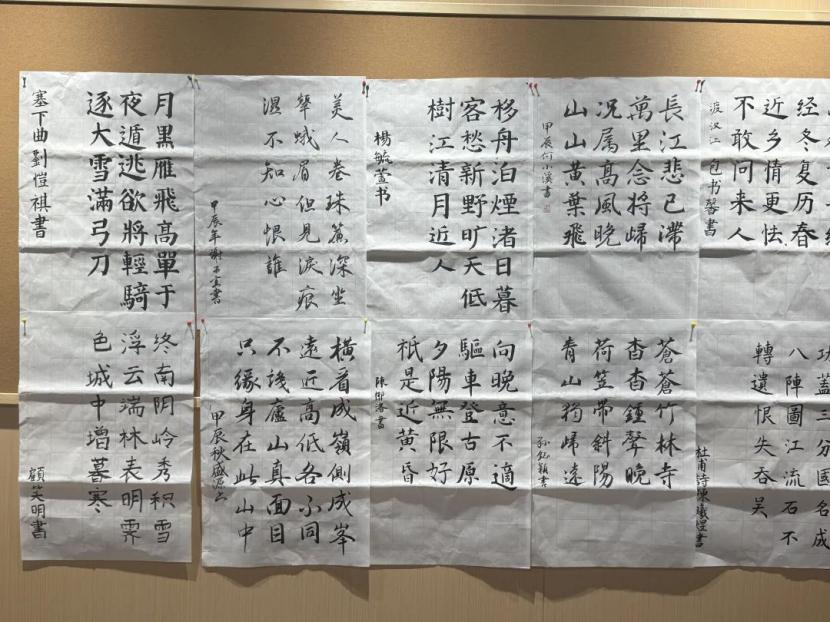 月黑雁飛高單于
夜遁逃欲將輕騎
逐大雪滿弓刀
塞下曲劉愷祺書
美人卷珠簾深坐
顰蛾眉但見淚痕
濕不知心恨誰
甲辰年謝書
移舟泊煙渚日暮
客愁新野旷天低
樹江清月近人
楊毓萱书
長江悲已滯
萬里念將歸
况属高風晚
山山黄葉飛
甲辰何小溪書
经冬复历春
近乡情更怯
不敢问来人
渡汉江 包书馨書
终南阴岭秀积雪
浮云端林表明霁
色城中增暮寒
顧笑明書
橫看成嶺側成峯
遠近高低各不同
不識廬山真面目
只緣身在此山中
甲辰秋盛
向晚意不適
驅車登古原
夕陽無限好
祇是近黄昏
陳書
蒼蒼竹林寺
杳杳鍾聲晚
荷笠帶斜陽
青山独歸遠
孫穎書
功蓋三分國名成
八陣圖江流石不
轉遺恨失吞吴
杜甫詩陳曦煜書